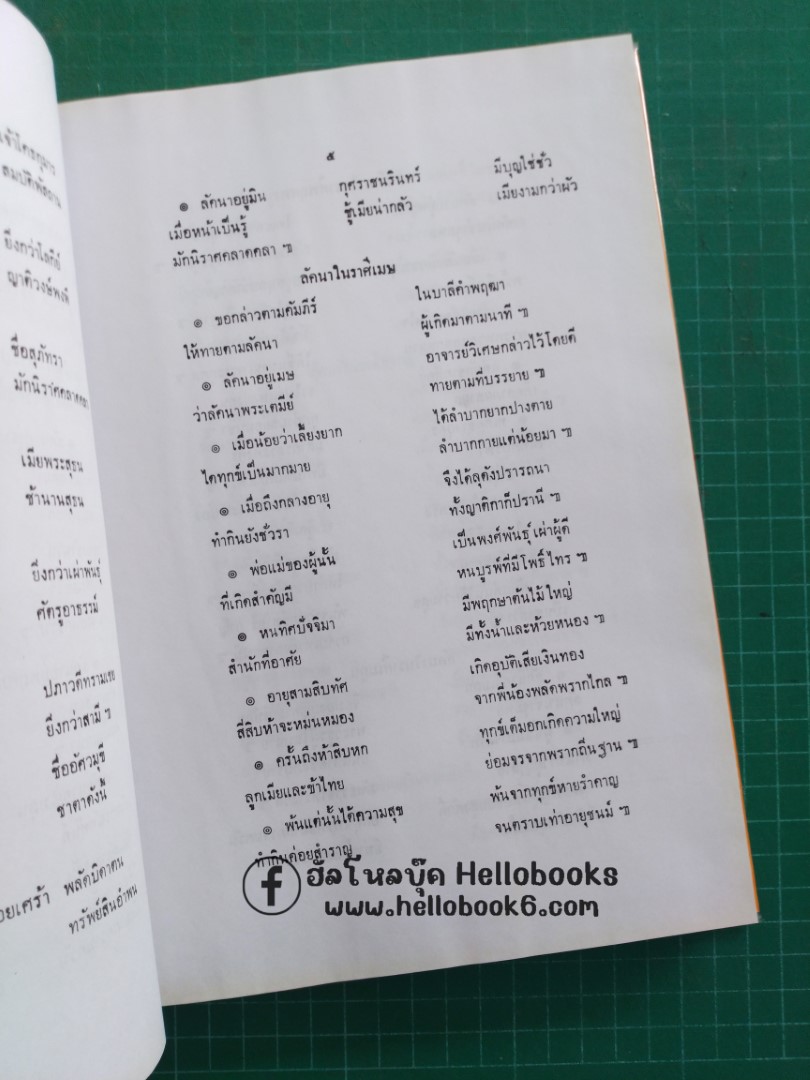 เจ้าไตรภูวาร
สมบัติพัสถาน
ยิ่งกว่าโลกีย์
ญาติวงษ์พงศ์
ชื่อสุภัทรา
มักนิราศคลาดคลา
เมียพระสุธน
ช้านานสุธน
ยิ่งกว่าเผ่าพันธุ์
ศัตรูอาธรรม์
ปภาวดีทรามเชย
ยิ่งกว่าสามี ฯ
ชื่ออัศวมุขี
ชาตาดังนี้
พลัดบิดาตน
ทรัพย์สินอำพน
๕
๏ ลัคนาอยู่มิน กุศราชนรินทร์ มีบุญใช่ชั่ว
เมื่อหน้าเป็นรู้ ชู้เมียน่ากลัว เมียงามกว่าผัว
มักนิราศคลาดคลา ฯ
ลัคนาในราศีเมษ
๏ ขอกล่าวตามคัมภีร์ ในบาลีคำพฤฒา
ให้ทายตามลัคนา ผู้เกิดมาตามนาที ฯ
๏ ลัคนาอยู่เมษ อาจารย์วิเศษกล่าวไว้โดยดี
ว่าลัคนาพระเตมีย์ ทายตามที่บรรยาย ฯ
๏ เมื่อน้อยว่าเลี้ยงยาก ได้ลำบากยากปางตาย
ไดทุกข์เป็นมากมาย ลำบากกายแต่น้อยมา ฯ
๏ เมื่อถึงกลางอายุ จึงได้ลุดังปรารถนา
ทำกินยังชั่วรา ทั้งญาติกาก็ปรานี ฯ
๏ พ่อแม่ของผู้นั้น เป็นพงศ์พันธุ์เผ่าผู้ดี
ที่เกิดสำคัญมี หนบูรพ์ที่มีโพธิ์ไทร ฯ
๏ หนทิศปัจจิมา มีพฤกษาต้นไม้ใหญ่
สำนักที่อาศัย มีทั้งน้ำและห้วยหนอง ฯ
๏ อายุสามสิบทัศ เกิดอุบัติเสียเงินทอง
สี่สิบห้าจะหม่นหมอง จากพี่น้องพลัดพรากไกล ฯ
๏ ครั้นถึงห้าสิบหก ทุกข์เต็มอกเกิดความใหญ่
ลูกเมียและข้าไทย ย่อมจรจากพรากถิ่นฐาน ฯ
๏ พ้นแต่นั้นได้ความสุข พ้นจากทุกข์หายรำคาญ
ทำกินค่อยสำราญ จนตราบเท่าอายุชนม์ ฯ
ฮัลโหลบุ๊ค Hellobooks
www.hellobook6.com